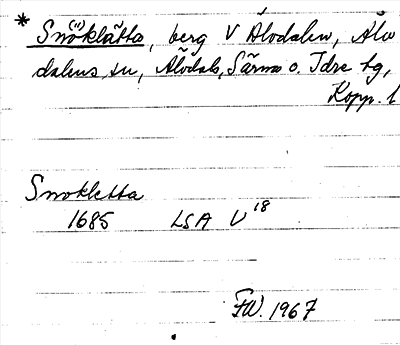 * Snö(ö)klätta, berg V Älvdalen, Älv
dalens sn, Älvdals, Särna o. Idre tg,
Kopp. l
Snokletta
1685 LSA U 18
FW. 1967